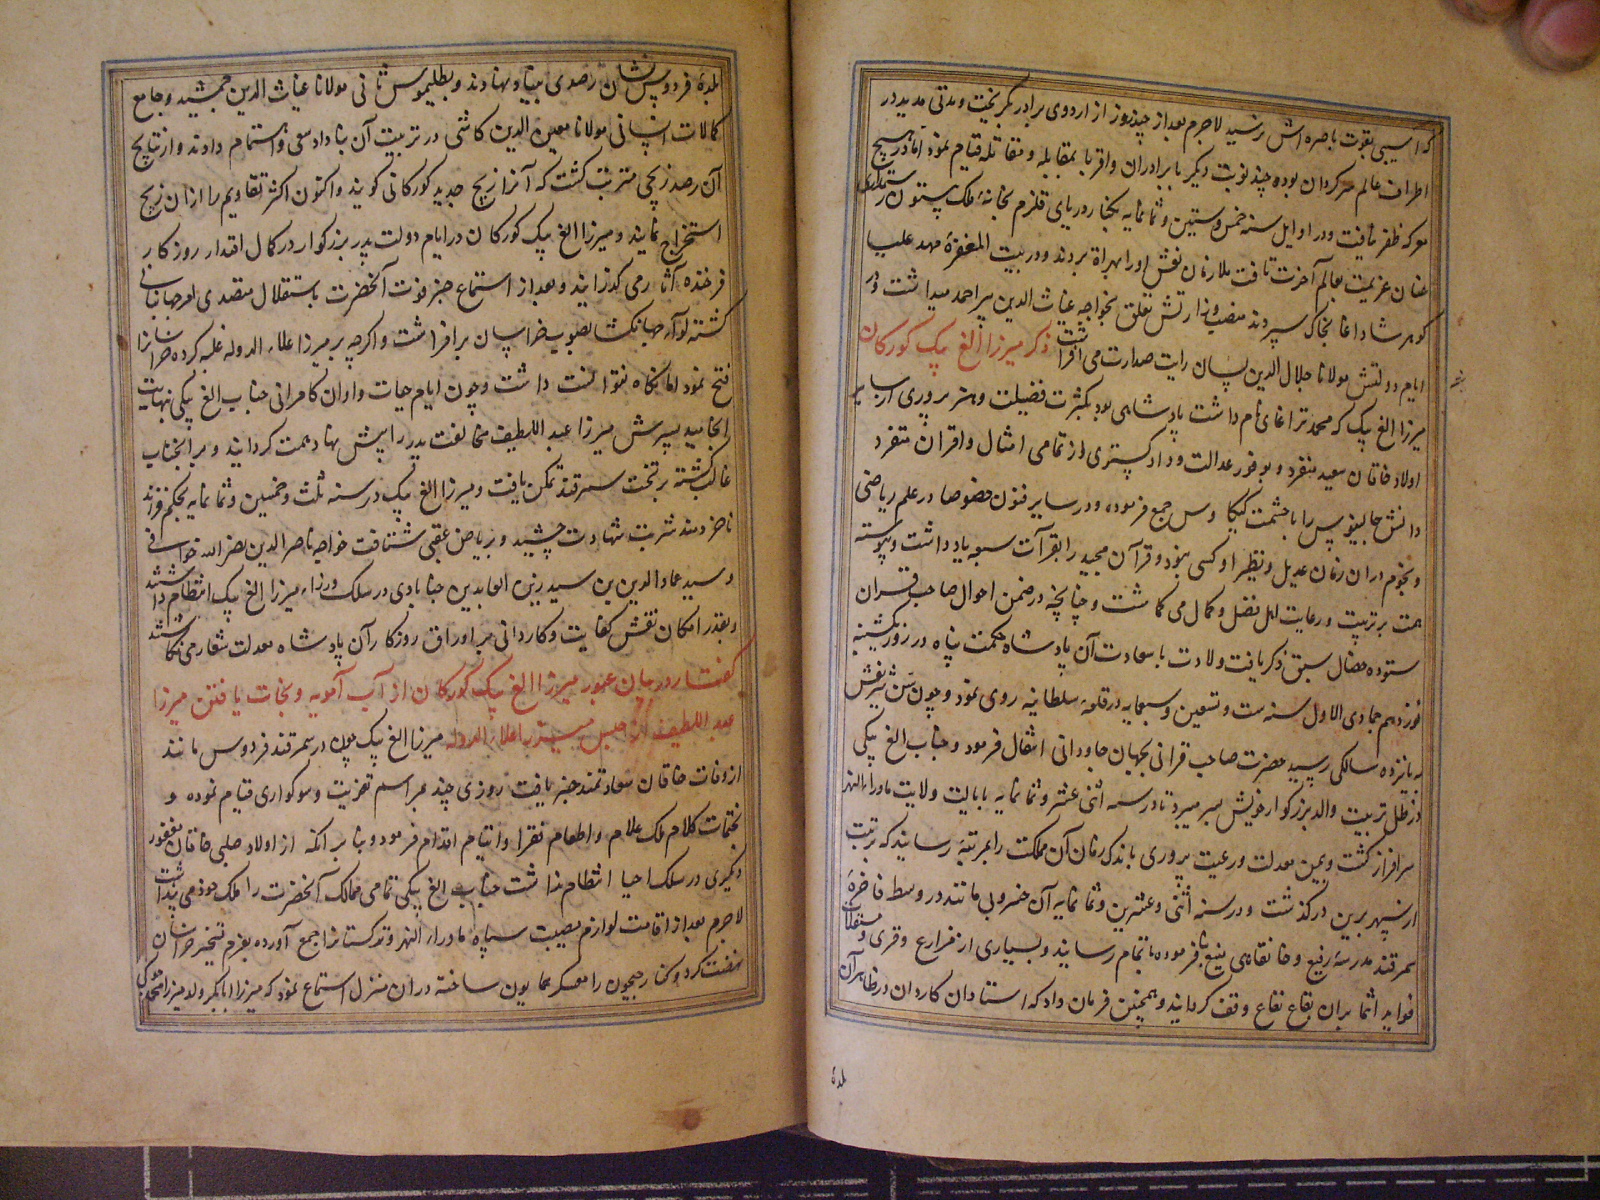 که آسیبی بقوت باصره اش نرسید لاجرم بعد از چند روز از اردوی برادر بگریخت و مدتی مدید در
اطراف عالم سرگردان بوده چند نوبت دیگر با برادران و اقربا بمقابله و مقاتله قیام نمود اما در هیچ
معرکه ظفر نیافت و در اوایل سنه خمس و ستین و ثمانمایه بکنار دریای قلزم بخانهٔ ملک
عنان عزیمت بعالم آخرت تافت ملازمان نعش او را بهراة بردند و در بیت المغفرهٔ مهد علیا
کوهرشاد اغا بخاک سپردند منصب وزارتش تعلق بخواجه غیاث الدین پیر احمد میداشت و در
ایام دولتش مولانا جلال الدین رایت صدارت می افراشت ذکر میرزا الغ بیک کورکان
میرزا الغ بیک که محمد تراغای نام داشت پادشاهی بود بکثرت فضیلت و هنرپروری از سایر
اولاد خاقان سعید منفرد و بوفور عدالت و دادکستری از تمامی امثال و اقران متفرد
دانش جالینوس را با حشمت کیکاوس جمع فرموده و در سایر فنون خصوصا در علم ریاضی
و نجوم در ان زمان عدیل و نظیر او کسی نبود و قرآن مجید را بقرآت سبعه یاد داشت و پیوسته
همت بر تربیت و رعایت اهل فضل و کمال می کماشت و چنانچه در ضمن احوال صاحب قران
ستوده خصال سبق ذکر یافت ولادت با سعادت آن پادشاه حکمت پناه در روز یکشنبه
نوزدهم جمادی الاول سنه ست و تسعین و سبعمایه در قلعهٔ سلطانیه روی نمود و چون سن شریفش
به پانزده سالکی رسید حضرت صاحب قرانی بجهان جاودانی انتقال فرمود و جناب الغ بیکی
در ظل تربیت والد بزرکوار خویش بسر میبرد تا در سنه اثنی عشر و ثمانمایه بایالت ولایت ماوراءالنهر
سرافراز کشت و بیمن معدلت و رعیت پروری باندک زمان آن مملکت را بمرتبهٔ رسانید که برتبت
از سپهر برین درکذشت و در سنه اثنی و عشرین و ثمانمایه آن خسرو بی مانند در وسط فاخرهٔ
سمرقند مدرسهٔ رفیع و خانقاهی منیع بنا فرموده باتمام رسانید و بسیاری از مزارع و قری و مستغلات
فواید انتما بران بقاع نفاع وقف کردانید و همچنین فرمان داد که استادان کاردان در ظاهر آن
بلدهٔ
بلدهٔ فردوس نشان رصدی بنیاد نهادند و بطلیموس ثانی مولانا غیاث الدین جمشید و جامع
کمالات انسانی مولانا معین الدین کاشی در تربیت آن بنا داد سعی و اهتمام دادند و از نتایج
آن رصد زیجی مترتب کشت که آنرا زیج جدید کورکانی کویند و اکنون اکثر تقاویم را از ان زیج
استخراج نمایند و میرزا الغ بیک کورکان در ایام دولت پدر بزرکوار در کمال اقتدار روزکار
فرخنده آثار می کذرانید و بعد از استماع خبر فوت آنحضرت باستقلال متصدی امر جهانبانی
کشته لوآء جهانکشا بصوب خراسان برافراشت و اکرچه بر میرزا علاء الدوله غلبه کرده خراسانرا
فتح نمود اما نکاه نتوانست داشت و چون ایام حیات و اوان کامرانی جناب الغ بیکی بنهایت
انجامید پسرش میرزا عبد اللطیف مخالفت پدر را پیش نهاد همت کردانید و بر آنجناب
غالب کشته بر تخت سمرقند تمکن یافت و میرزا الغ بیک در سنه ثلث و خمسین و ثمانمایه بحکم فرزند
ناخردمند شربت شهادت چشید و بریاض عقبی شتافت خواجه ناصر الدین نصر الله خوافی
و سید عماد الدین بن سید زین العابدین جنابادی در سلک وزراء میرزا الغ بیک انتظام داشتند
و بقدر امکان نقش کفایت و کاردانی بر اوراق روزکار آن پادشاه معدلت شعار می نکاشتند
کفتار در بیان عبور میرزا الغ بیک کورکان از آب آمویه و نجات یافتن میرزا
عبد اللطیف از حبس میرزا علاء الدوله میرزا الغ بیک چون در سمرقند فردوس مانند
از وفات خاقان سعادتمند خبر یافت روزی چند بمراسم تعزیت و سوکواری قیام نموده و
بختمات کلام ملک علام و اطعام فقرا و ایتام اقدام فرمود و بنا بر انکه از اولاد صلبی خاقان مغفور
دیکری در سلک احیا انتظام نداشت جناب الغ بیکی تمامی ممالک آنحضرت را ملک خود می پنداشت
لاجرم بعد از اقامت لوازم مصیبت سپاه ماوراء النهر و ترکستانرا جمع آورده بعزم تسخیر خراسان
نهضت کرد و کنار جیحون را معسکر همایون ساخته در ان منزل استماع نمود که میرزا ابابکر ولد میرزا محمد جوکی